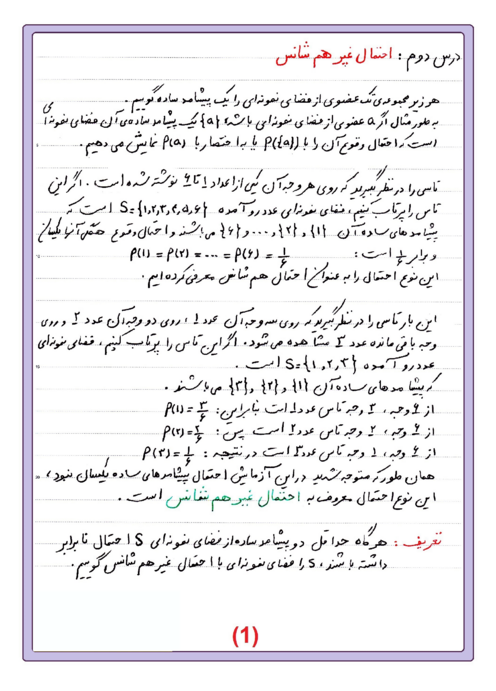 درس دوم : احتمال غیر هم شانس
هر زیر مجموعه‌ی تک عضوی از فضای نمونه‌ای را یک پیشامد ساده گوییم .
به طور مثال اگر a عضوی از فضای نمونه‌ای باشد {a} یک پیشامد ساده‌ی آن فضای نمونه‌ای
است که احتمال وقوع آن را با P({a}) یا به اختصار با P(a) نمایش می دهیم .
تاسی را در نظر بگیرید که روی هر وجه آن یکی از اعداد ۱ تا ۶ نوشته شده است . اگر این
تاس را پرتاب کنیم ، فضای نمونه‌ای عدد رو آمده S={۱,۲,۳,۴,۵,۶} است که
پیشامدهای ساده آن {۱} و {۲} و ... و {۶} می باشند و احتمال وقوع همگی آنها یکسان
و برابر ۱/۶ است : P(۱) = P(۲) = ... = P(۶) = ۱/۶
این نوع احتمال را به عنوان احتمال هم شانس معرفی کرده ایم .
این بار تاسی را در نظر بگیرید که روی سه وجه آن عدد ۱ ، روی دو وجه آن عدد ۲ و روی
وجه باقی مانده عدد ۳ مشاهده می شود . اگر این تاس را پرتاب کنیم ، فضای نمونه‌ای
عدد رو آمده S={۱,۲,۳} است .
که پیشامدهای ساده آن {۱} و {۲} و {۳} می باشند .
از ۶ وجه ، ۳ وجه تاس عدد ۱ است بنابراین : P(۱) = ۳/۶
از ۶ وجه ، ۲ وجه تاس عدد ۲ است پس : P(۲) = ۲/۶
از ۶ وجه ، ۱ وجه تاس عدد ۳ است در نتیجه : P(۳) = ۱/۶
همان طور که متوجه شدید در این آزمایش احتمال پیشامدهای ساده یکسان نبود ،
این نوع احتمال معروف به احتمال غیر هم شانس است .
تعریف : هرگاه حداقل دو پیشامد ساده از فضای نمونه‌ای S احتمال نابرابر
داشته باشند ، S را فضای نمونه‌ای با احتمال غیر هم شانس گوییم .
(1)